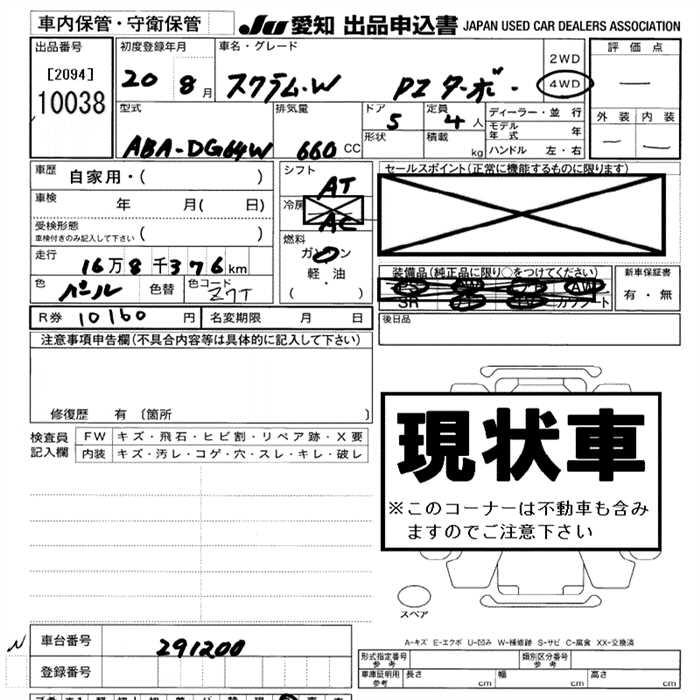 車内保管・守衛保管 JU 愛知 出品申込書 JAPAN USED CAR DEALERS ASSOCIATION
出品番号 初度登録年月 車名・グレード 2WD 評価点
[2094] 20 8月 スクラム.W PZ ターボ- 4WD —
10038 型式 排気量 ドア 定員 ディーラー・並行 外装 内装
ABA-DG64W 660CC 5 4人 モデル年式 年 — —
形状 積載 kg ハンドル 左・右
車歴 自家用・( ) シフト AT セールスポイント(正常に機能するものに限ります)
車検 年 月( 日) 冷房 AC
受検形態 ( )
車検付きのみ記入して下さい 燃料
走行 ガソリン
16万8千376km 軽・油 装備品(純正品に限り○をつけてください) 新車保証書
色 パール 色替 色コード Z7T ( ) PS PW AW 有・無
SR TV カワシート
R券 10160円 名変期限 月 日 後日品
注意事項申告欄(不具合内容等は具体的に記入して下さい)
修復歴 有 〔箇所 〕
検査員 FW キズ・飛石・ヒビ割・リペア跡・X要
記入欄 内装 キズ・汚レ・コゲ・穴・スレ・キレ・破レ
現状車
※このコーナーは不動車も含み
ますのでご注意下さい
スペア
A-キズ E-エクボ U-凹み W-補修跡 S-サビ C-腐食 XX-交換済
N 車台番号 291200
型式指定番号参考 類別区分番号参考
登録番号 車庫証明用参考 長さ cm 幅 cm 高さ cm